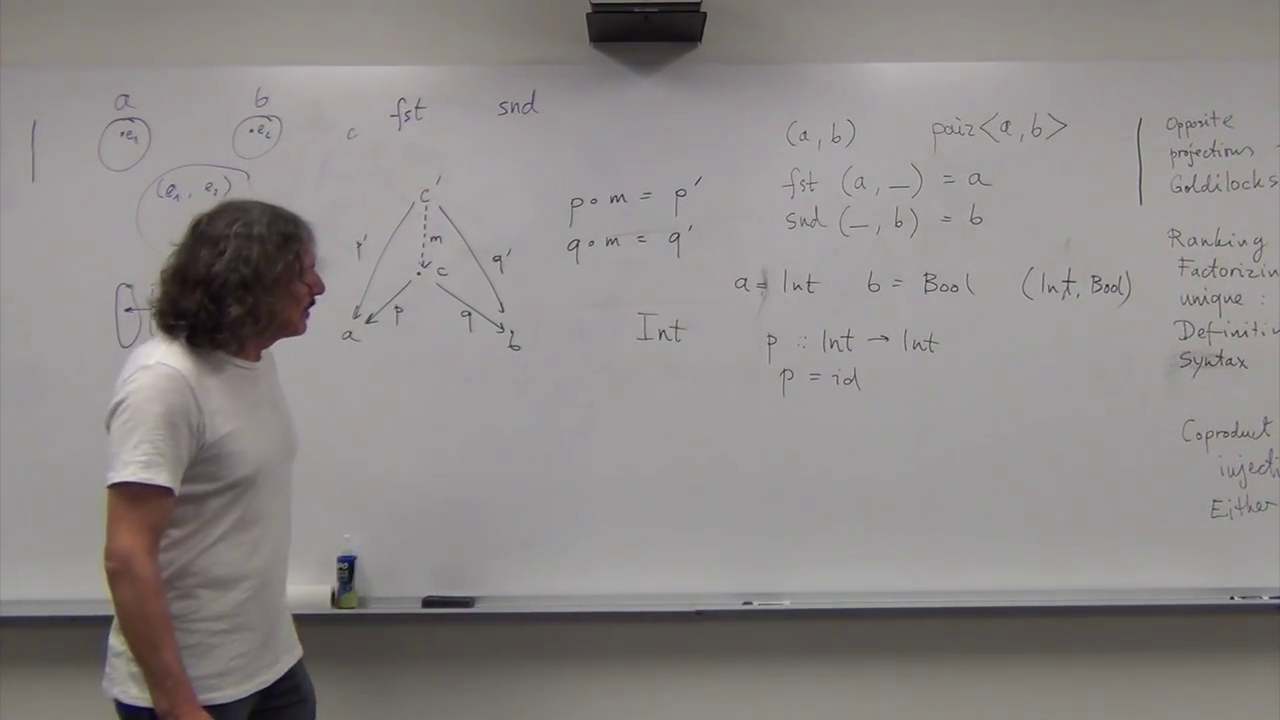 a b
•e₁ •e₂
(e₁, e₂)
c fst snd
c'
p' m q'
c
p q
a b
p ∘ m = p'
q ∘ m = q'
Int
(a, b) pair<a, b>
fst (a, _) = a
snd (_, b) = b
a = Int b = Bool (Int, Bool)
p :: Int → Int
p = id
Opposite
projections
Goldilocks
Ranking
Factorizin
unique :
Definiti
Syntax
Coproduct
injecti
Either